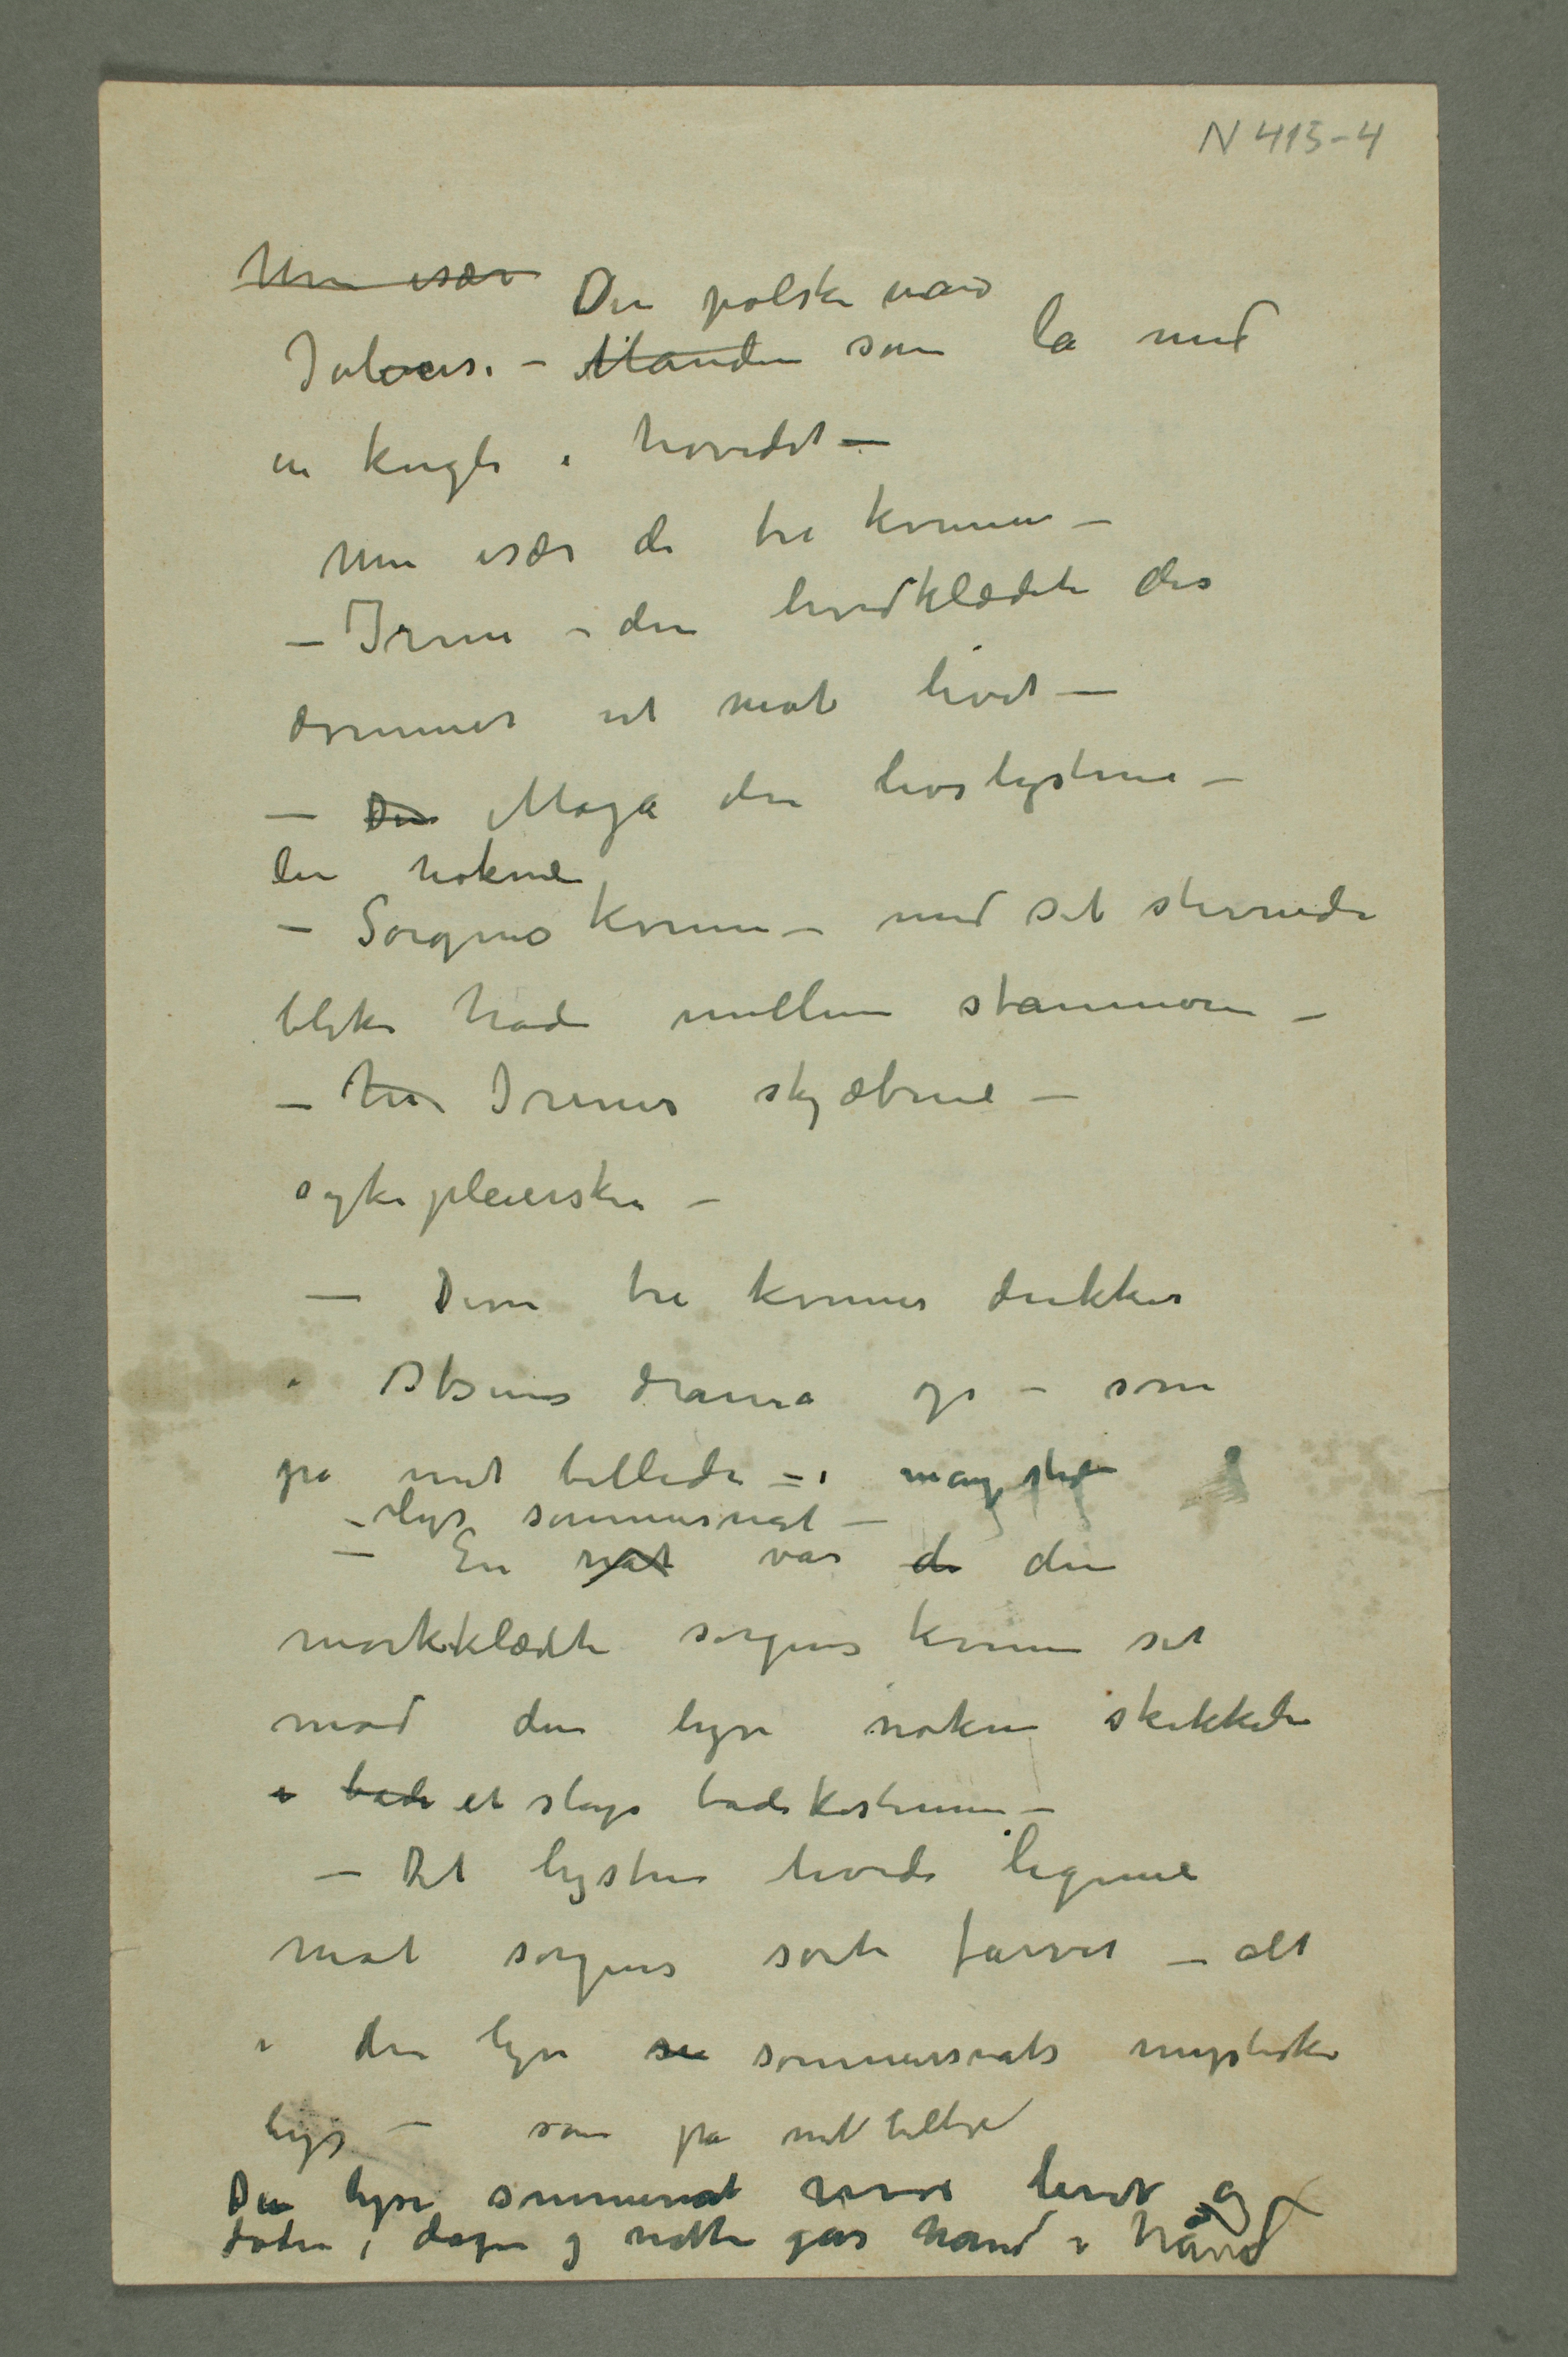 N 415-4
Men især Den polske mand
Jalousi. – Manden som lå med
en kugle i hovedet –
Men især de tre kvinner –
– Irene – den hvidklædte der
drømmer ut mot livet –
– Den Maja den livslystne –
den nøkne
– Sorgens kvinne – med sit stirrende
bleke hode mellem stammerne –
– her Irenes skjæbne –
sykepleiersken –
– Disse tre kvinner dukker
i Ibsens drama op – som
på mit billede – i mange steder
– lys sommernat –
– En nat var de den
mørkklædte sorgens kvinne set
mod den lyse nøkne skikkelse
i bade et slags badekostume –
– Det lystne hvide legeme
mot sorgens sorte farver – alt
i den lyse se sommernats mystiske
lys – som på mit billede
Den lyse sommernat hvor livet og
døden, dagen og natten går hånd i hånd